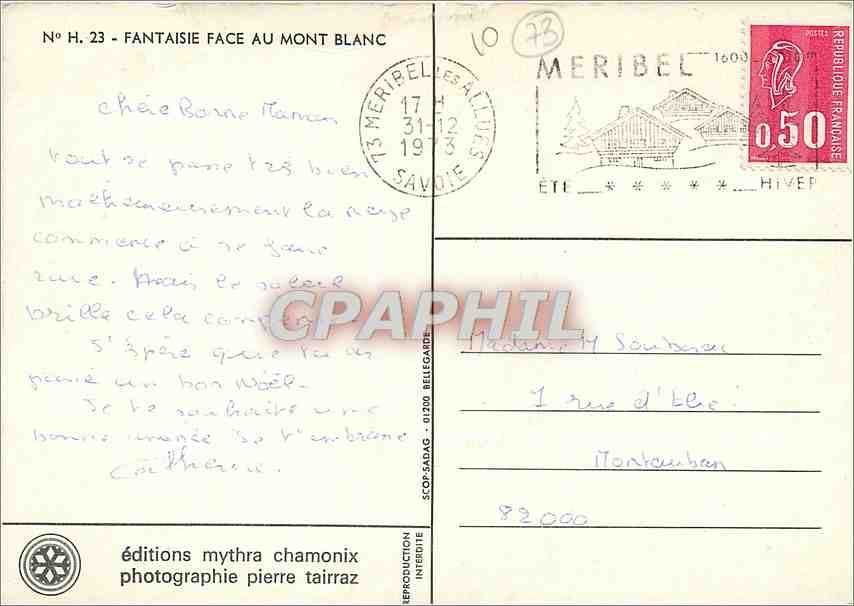 Nº H. 23 - FANTAISIE FACE AU MONT BLANC
10
73
73 MERIBEL LES ALLUES
17 H
31-12
1973
SAVOIE
MERIBEL
1600
ÉTÉ * * * * * HIVER
POSTES
REPUBLIQUE FRANÇAISE
0,50
Chère Bonne Maman
tout se passe très bien
malheureusement la neige
commence à se faire
rare. Mais le soleil
brille cela compense
J'espère que tu as
passé un bon Noël.
Je te souhaite une
bonne année je t'embrasse
Catherine.
CPARPHIL
Madame M
1 rue d'
Montauban
82000
SCOP-SADAG - 01200 BELLEGARDE
REPRODUCTION
INTERDITE
éditions mythra chamonix
photographie pierre tairraz